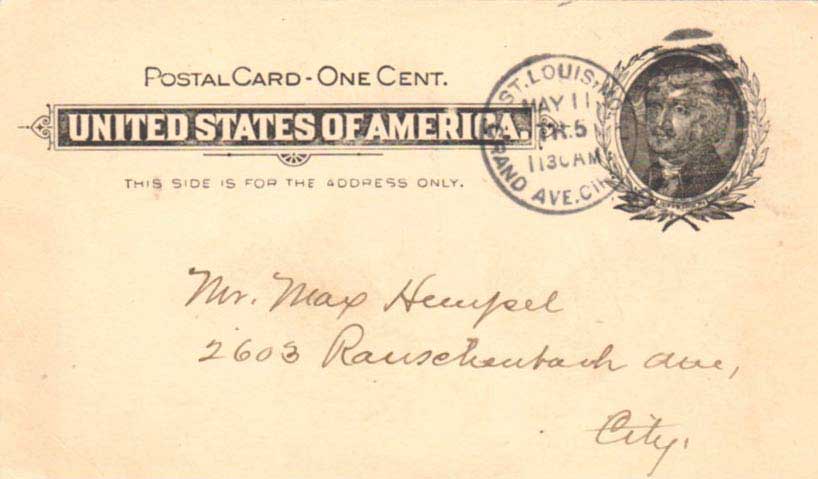 POSTAL CARD - ONE CENT.
UNITED STATES OF AMERICA.
THIS SIDE IS FOR THE ADDRESS ONLY.
ST. LOUIS, MO
MAY 11
TR. 5
1130AM
GRAND AVE. CIR
Mr. Max Hempel
2603 Rauschenbach Ave,
City.